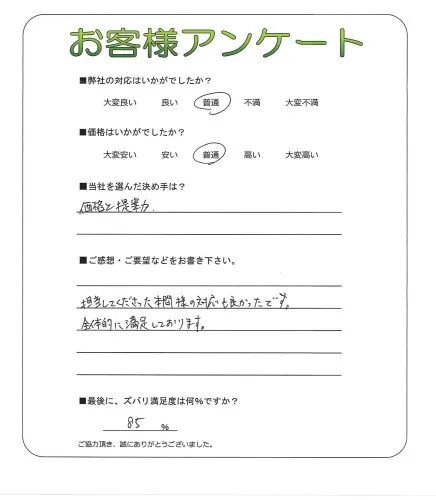 お客様アンケート
■弊社の対応はいかがでしたか？
大変良い 良い 普通 不満 大変不満
■価格はいかがでしたか？
大変安い 安い 普通 高い 大変高い
■当社を選んだ決め手は？
価格と提案力.
■ご感想・ご要望などをお書き下さい。
担当してくださった本間様の対応も良かったです。
全体的に満足しております。
■最後に、ズバリ満足度は何%ですか？
85 %
ご協力頂き、誠にありがとうございました。